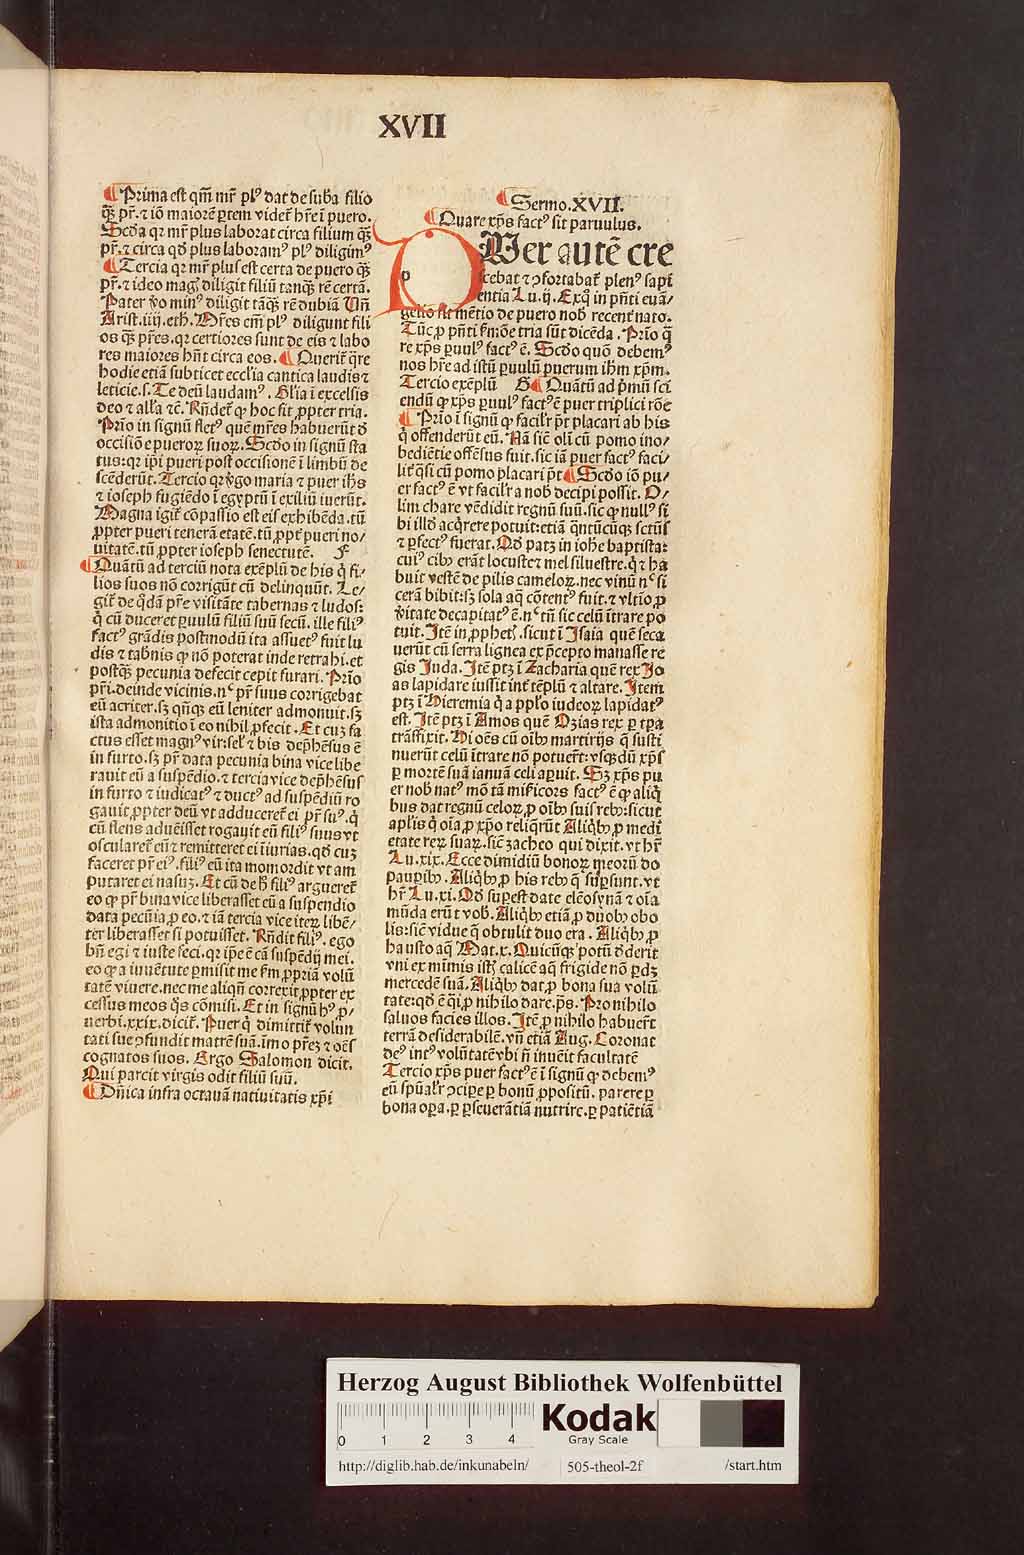 XVII
¶ Prima est qm̄ mr̄ plꝰ dat de sub̄a filio
qꝫ pr̄. ⁊ iō maiorē ꝑtem vider̄ hr̄e ī puero.
Scd̓a qꝛ mr̄ plus laborat circa filium qꝫ
pr̄. ⁊ circa qd̓ plus laboramꝰ plꝰ diligimꝰ
¶ Tercia qꝛ mr̄ plus est certa de puero qꝫ
pr̄. ⁊ ideo magꝭ diligit filiū tanqꝫ rē certā.
Pater v̓o minꝰ diligit tāqꝫ rē dubiā Vn̄
Arist. iiij. eth. Mr̄es em̄ plꝰ diligunt fili
os qꝫ pr̄es. qꝛ certiores sunt de eis ⁊ labo
res maiores hn̄t circa eos. ¶ Querit̄ q̄re
hodie etiā subticet eccl̓ia cantica laudis ⁊
leticie. s. Te deū laudamꝰ. Gl̓ia ī excelsis
deo ⁊ all̓a ⁊c̄. Rn̄der̄ ꝙ hoc sit ꝓpter tria.
Prīo in signū fletꝰ quē mr̄es habuerūt d̓
occisiōe pueroꝝ suoꝝ. Scd̓o in signū sta
tus: qꝛ ip̄i pueri post occisionē ī limbū de
scēderūt. Tercio qꝛ v̓go maria ⁊ puer ih̄s
⁊ ioseph fugiēdo ī egyptū ī exiliū iuerūt.
Magna igit̄ cōpassio est eis exhibēda. tū
ꝓpter pueri tenerā etatē. tū ꝓpt̓ pueri no/
uitatē. tū ꝓpter ioseph senectutē. F
¶ Quātū ad terciū nota exēplū de his q̇ fi/
lios suos nō corrigūt cū delinquūt. Le/
git̄ de q̇dā pr̄e visitāte tabernas ⁊ ludos:
q̇ cū duceret ꝑuulū filiū suū secū. ille filiꝰ
factꝰ grādis postmodū ita assuetꝰ fuit lu
dis ⁊ tab̓nis ꝙ nō poterat inde retrahi. et
postqꝫ pecunia defecit cepit furari. Prīo
pr̄i. deinde vicinis. nͨ pr̄ suus corrigebat
eū acriter. sꝫ qn̄qꝫ eū leniter admonuit. sꝫ
ista admonitio ī eo nihil ꝓfecit. Et cuꝫ fa
ctus esset magnꝰ vir. sel̓ ⁊ bis dep̄hēsus ē
in furto. sꝫ pr̄ data pecunia bina vice libe
rauit eū a suspēdio. ⁊ tercia vice dep̄hēsus
in furto ⁊ iudicatꝰ ⁊ ductꝰ ad suspēdiū ro
gauit ꝓpter deū vt adduceret̄ ei pr̄ suꝰ. q̇
cū flens aduēisset rogauit eū filiꝰ suus vt
oscularet̄ eū ⁊ remitteret ei īiurias. qd̓ cuꝫ
faceret pr̄ eiꝰ. filiꝰ eū ita momordit vt am
putaret ei nasuꝫ. Et cū de h̓ filiꝰ argueret̄
eo ꝙ pr̄ bina vice liberasset eū a suspendio
data pecūia ꝓ eo. ⁊ iā tercia vice iteꝝ libē/
ter liberasset si potuisset. Rn̄dit filiꝰ. ego
bn̄ egi ⁊ iuste feci. qꝛ ip̄e ē cā suspēdij mei.
eo ꝙ a iuuētute ꝑmisit me fm̄ ꝓpriā volū
tatē viuere. nec me aliqn̄ correxit ꝓpter ex
cessus meos q̇s cōmisi. Et in signū hꝰ ꝓ/
uerbi. xxix. dicit̄. Puer q̇ dimittit̄ volun
tati sue ꝯfundit matrē suā. īmo pr̄eꝫ ⁊ oēs
cognatos suos. Ergo Salomon dicit.
Qui parcit virgis odit filiū suū.
¶ Dn̄ica infra octauā natiuitatis xp̄i
¶ Sermo. XVII.
¶ Quare xp̄s factꝰ sit paruulus.
PUer autē cre
scebat ⁊ ꝯfortabat̄ plenꝰ sapi
entia Lu. ij. Exq̇ in pn̄ti euā/
gelio fit mētio de puero nob̓ recent̓ nato.
Tūc ꝓ pn̄ti ẜmōe tria sūt dicēda. Prīo q̄
re xp̄s ꝑuulꝰ factꝰ ē. Scd̓o quō debemꝰ
nos hr̄e ad istū ꝑuulū puerum ih̄m xp̄m.
Tercio exēplū G ¶ Quātū ad p̓mū sci
endū ꝙ xp̄s ꝑuulꝰ factꝰ ē puer triplici rōe
¶ Prīo ī signū ꝙ facil̓r p̄t placari ab his
q̇ offenderūt eū. Nā sic̄ oli cū pomo ino/
bediētie offēsus fuit. sic iā puer factꝰ faci/
lit̓ q̄si cū pomo placari p̄t ¶ Scd̓o iō pu/
er factꝰ ē vt facil̓r a nob̓ decipi possit. O/
lim chare vēdidit regnū suū. sic ꝙ nullꝰ si
bi illd̓ acq̇rere potuit: etiā q̄ntūcūqꝫ sctūs
⁊ ꝑfectꝰ fuerat. Qd̓ patꝫ in ioh̓e baptista:
cuiꝰ cibꝰ erāt locuste ⁊ mel siluestre. q̇ ⁊ ha
buit vestē de pilis cameloꝝ. nec vinū nͨ si
cerā bibit: sꝫ sola aq̄ cōtentꝰ fuit. ⁊ vltio ꝓ
v̓itate decapitatꝰ ē. nͨ tn̄ sic celū ītrare po
tuit. Itē in ꝓphetꝭ. sicut ī Isaia quē seca
uerūt cū serra lignea ex p̄cepto manasse re
gis Iuda. Itē ptꝫ ī Zacharia quē rex Jo
as lapidare iussit int̓ tēplū ⁊ altare. Item
ptꝫ ī Hieremia q̇ a ppl̓o iudeoꝝ lapidatꝰ
est. Itē ptꝫ ī Amos quē Ozias rex ꝑ tꝑa
trāsfixit. Hi oēs cū oībꝰ martirijs q̄ susti
nuerūt celū ītrare nō potuer̄t: vsqꝫ dū xp̄s
ꝑ mortē suā ianuā celi aꝑuit. Sꝫ xp̄s pu
er nob̓ natꝰ mō tā mi̓sicors factꝰ ē ꝙ aliq̇
bus dat regnū celoꝝ ꝓ oībꝰ suis rebꝰ: sicut
apl̓is q̇ oīa ꝓ xp̄o reliq̄rūt Aliq̇bꝰ ꝓ medi
etate reꝝ suaꝝ. sic̄ zacheo qui dixit. vt hr̄
Lu. xix. Ecce dimidiū bonoꝝ meorū do
pauꝑibꝰ. Aliq̇bꝰ ꝓ his rebꝰ q̄ suꝑsunt. vt
hr̄ Lu. xi. Qd̓ suꝑest date elēosynā ⁊ oīa
mūda erūt vob̓. Aliq̇bꝰ etiā ꝓ duobꝰ obo
lis: sic̄ vidue q̄ obtulit duo era. Aliq̇bꝰ ꝓ
haustu aq̄ Mat. x. Quicūqꝫ potū dederit
vni ex mīmis istꝭ calicē aq̄ frigide nō ꝑdꝫ
mercedē suā. Aliq̇bꝰ dat ꝓ bona sua volū
tate: qd̓ ē q̄si ꝓ nihilo dare. ps̄. Pro nihilo
saluos facies illos. Itē ꝓ nihilo habuer̄t
terrā desiderabilē. vn̄ etiā Aug. Coronat
deꝰ intꝰ volūtatē vbi n̄ inuēit facultatē
Tercio xp̄s puer factꝰ ē ī signū ꝙ debemꝰ
eū spūal̓r ꝯciꝑe ꝑ bonū ꝓpositū. parere ꝑ
bona oꝑa. ꝑ ꝑseuerātiā nutrire. ꝑ patiētiā
Herzog August Bibliothek Wolfenbüttel
0 1 2 3 4
Kodak
Gray Scale
http://diglib.hab.de/inkunabeln/ 505-theol-2f /start.htm